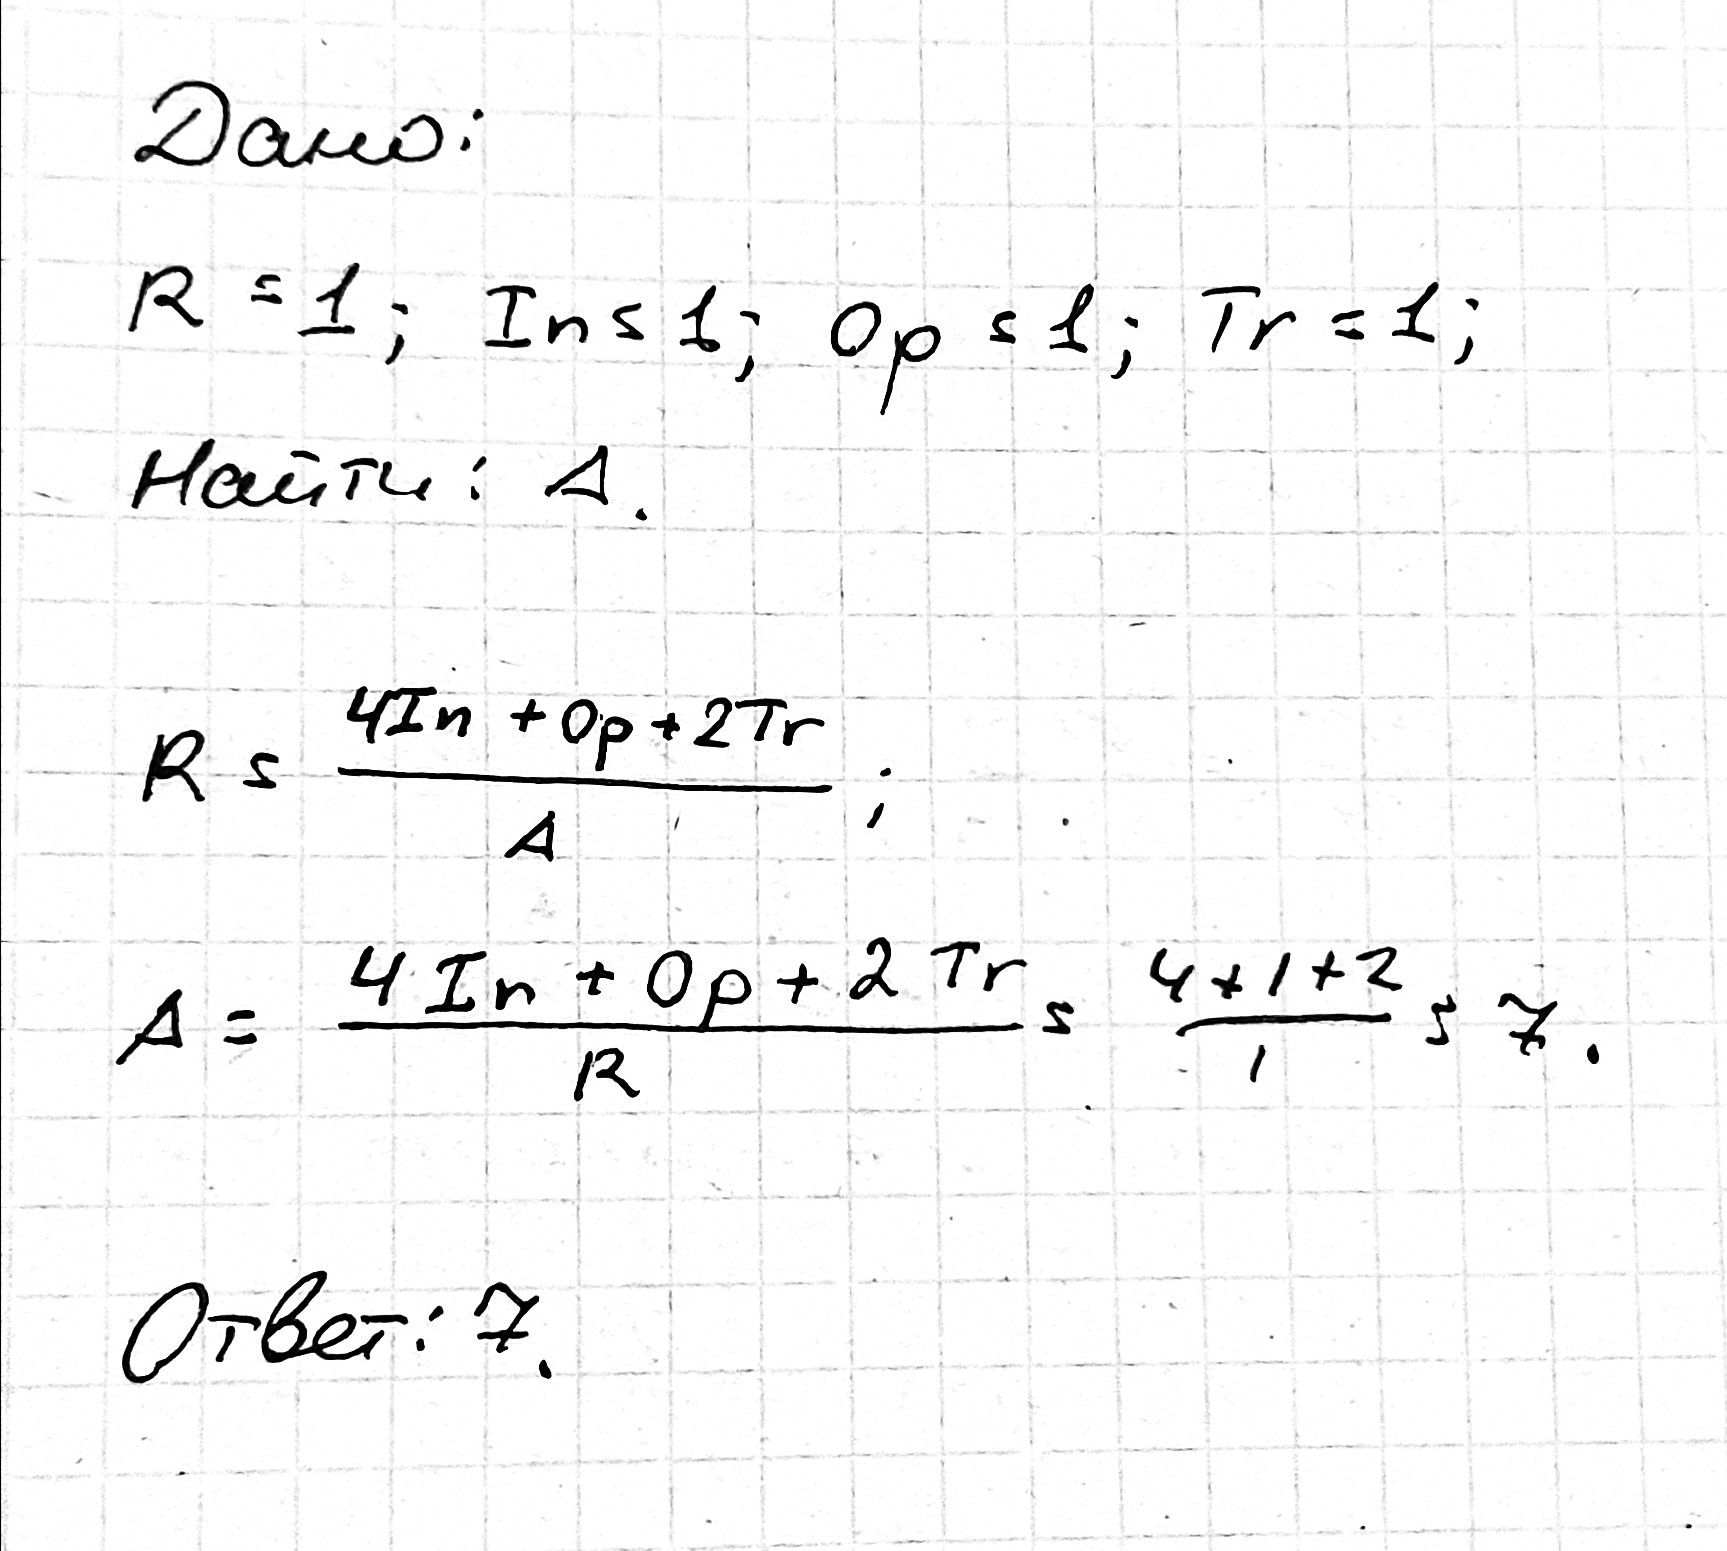 Дано:
R = 1; In = 1; Op = 1; Tr = 1;
Найти: A.
R = (4In + Op + 2Tr) / A;
A = (4 In + Op + 2 Tr) / R = (4 + 1 + 2) / 1 = 7.
Ответ: 7.